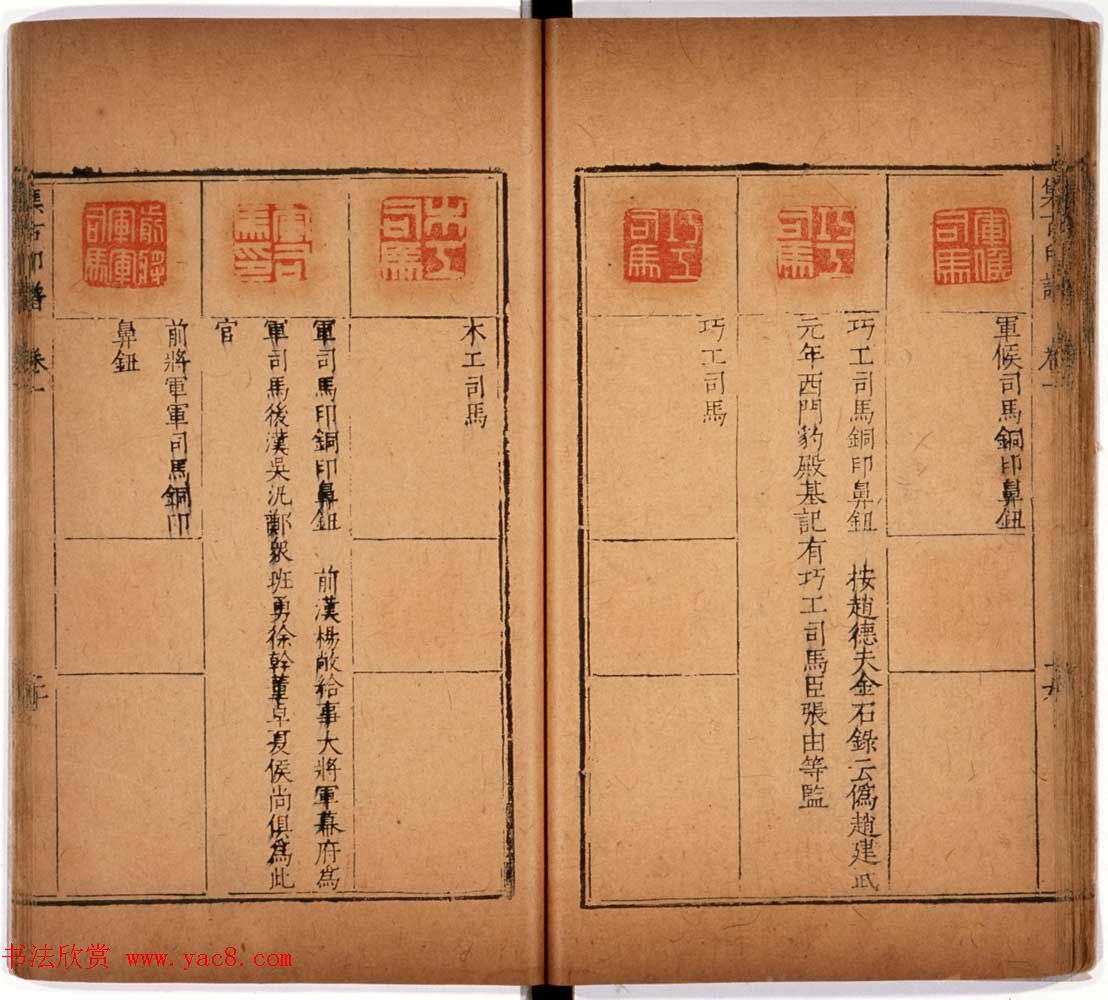 集古印譜 卷一
軍假司馬
軍候司馬銅印鼻鈕
巧工司馬
巧工司馬銅印鼻鈕 按趙德夫金石錄云偽趙建武
元年西門豹殿基記有巧工司馬臣張由等監
巧工司馬
巧工司馬
木工司馬
木工司馬
軍司馬印
軍司馬印銅印鼻鈕 前漢楊敞給事大將軍幕府為
軍司馬後漢吳汎鄭衆班勇徐幹董卓夏侯尚俱為此
官
前將軍軍司馬
前將軍軍司馬銅印
鼻鈕
集古印譜 卷一
书法欣赏 www.yac8.com